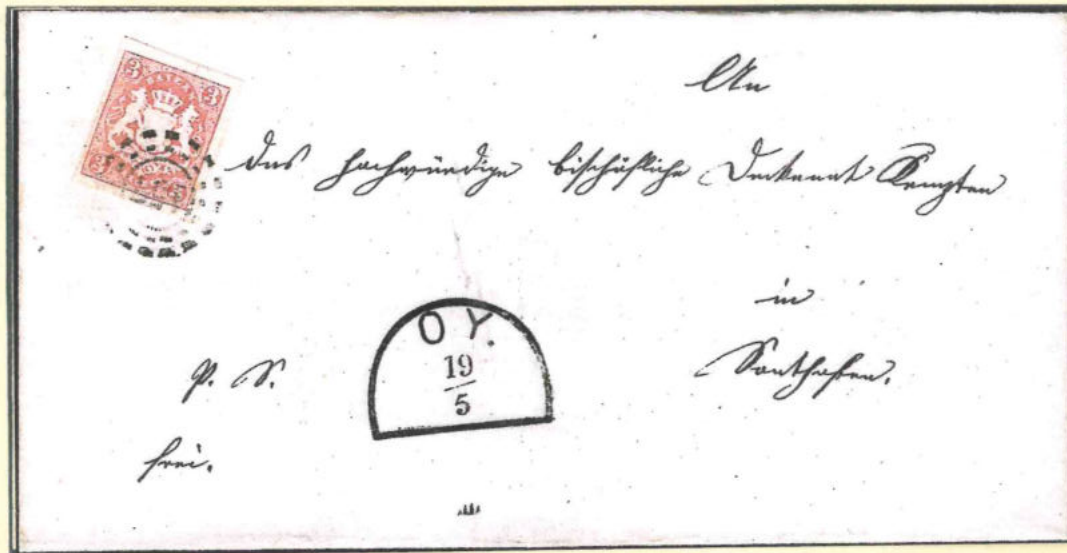 3 BAYERN 3
An
das hochwürdige bischöfliche Dekanat Kempten
in
Sonthofen.
OY.
19
5
P. S.
frei.